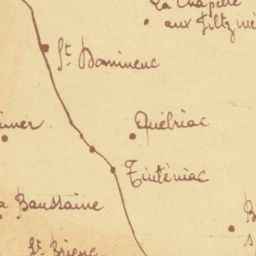 La Chapelle
aux Filtzmé
St. Domineuc
Québriac
Tinténiac
la Baussaine
St. Brieuc